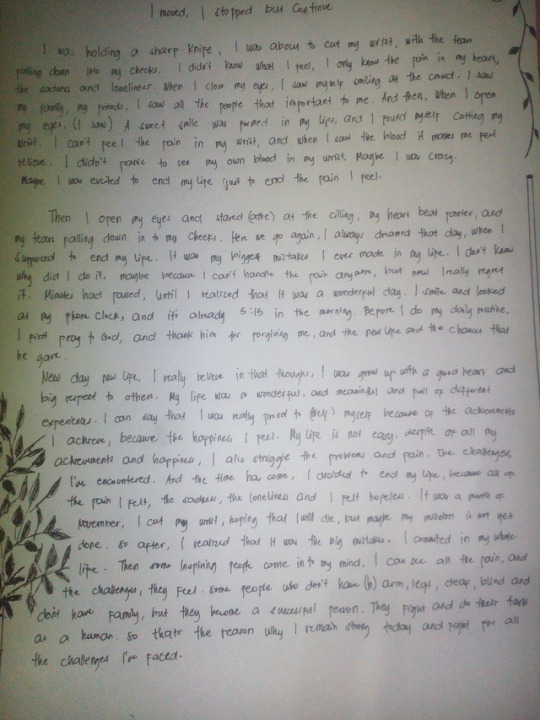 I moved, I stopped but Continue
I was holding a sharp knife, I was about to cut my wrist, with the tear
falling down into my cheeks. I didn't know what I feel, I only know the pain in my heart,
the sadness and loneliness. When I close my eyes, I saw myself smiling at the crowd. I saw
my family, my friends, I saw all the people that important to me. And then, when I open
my eyes. (I saw) A sweet smile was formed in my lips, and I found myself cutting my
wrist. I can't feel the pain in my wrist, and when I saw the blood it makes me feel
relieve. I didn't panic to see my own blood in my wrist. Maybe I was crazy.
Maybe I was excited to end my life just to end the pain I feel.
Then I open my eyes and stared (at the) at the cilling, my heart beat faster, and
my tears falling down in to my cheeks. Here we go again, I always dreamed that day, when I
supposed to end my life. It was my biggest mistakes I ever made in my life. I don't know
why did I do it, maybe because I can't handle the pain anymore, but now I really regret
it. Minutes had passed, until I realized that it was a wonderful day. I smile and looked
at my phone clock, and it's already 5:15 in the morning. Before I do my daily routine,
I first pray to God, and thank him for forgiving me, and the new life and the chances that
he gave.
New day new life, I really believe in that thoughts, I was grow up with a good heart and
big respect to others. My life was so wonderful, and meaningful and full of different
experiences. I can say that I was really proud to myself because of the achievements
I achieve, because the happiness I feel. My life is not easy, despite of all my
achievements and happiness, I also struggle the problems and pain. The challenges,
I've encountered. And the time has come, I decided to end my life, because all of
the pain I felt, the sadness, the loneliness and I felt hopeless. It was a month of
November, I cut my wrist, hoping that I will die, but maybe my mission is not yet
done. So after, I realized that it was the big mistakes I commited in my whole
life. Then some inspiring people come into my mind, I can see all the pain, and
the challenges, they feel. Some people who don't have (h) arm, legs, deaf, blind and
don't have family, but they become a successful person. They fight and do their task
as a human. So that's the reason why I remain strong today and fight for all
the challenges I've faced.